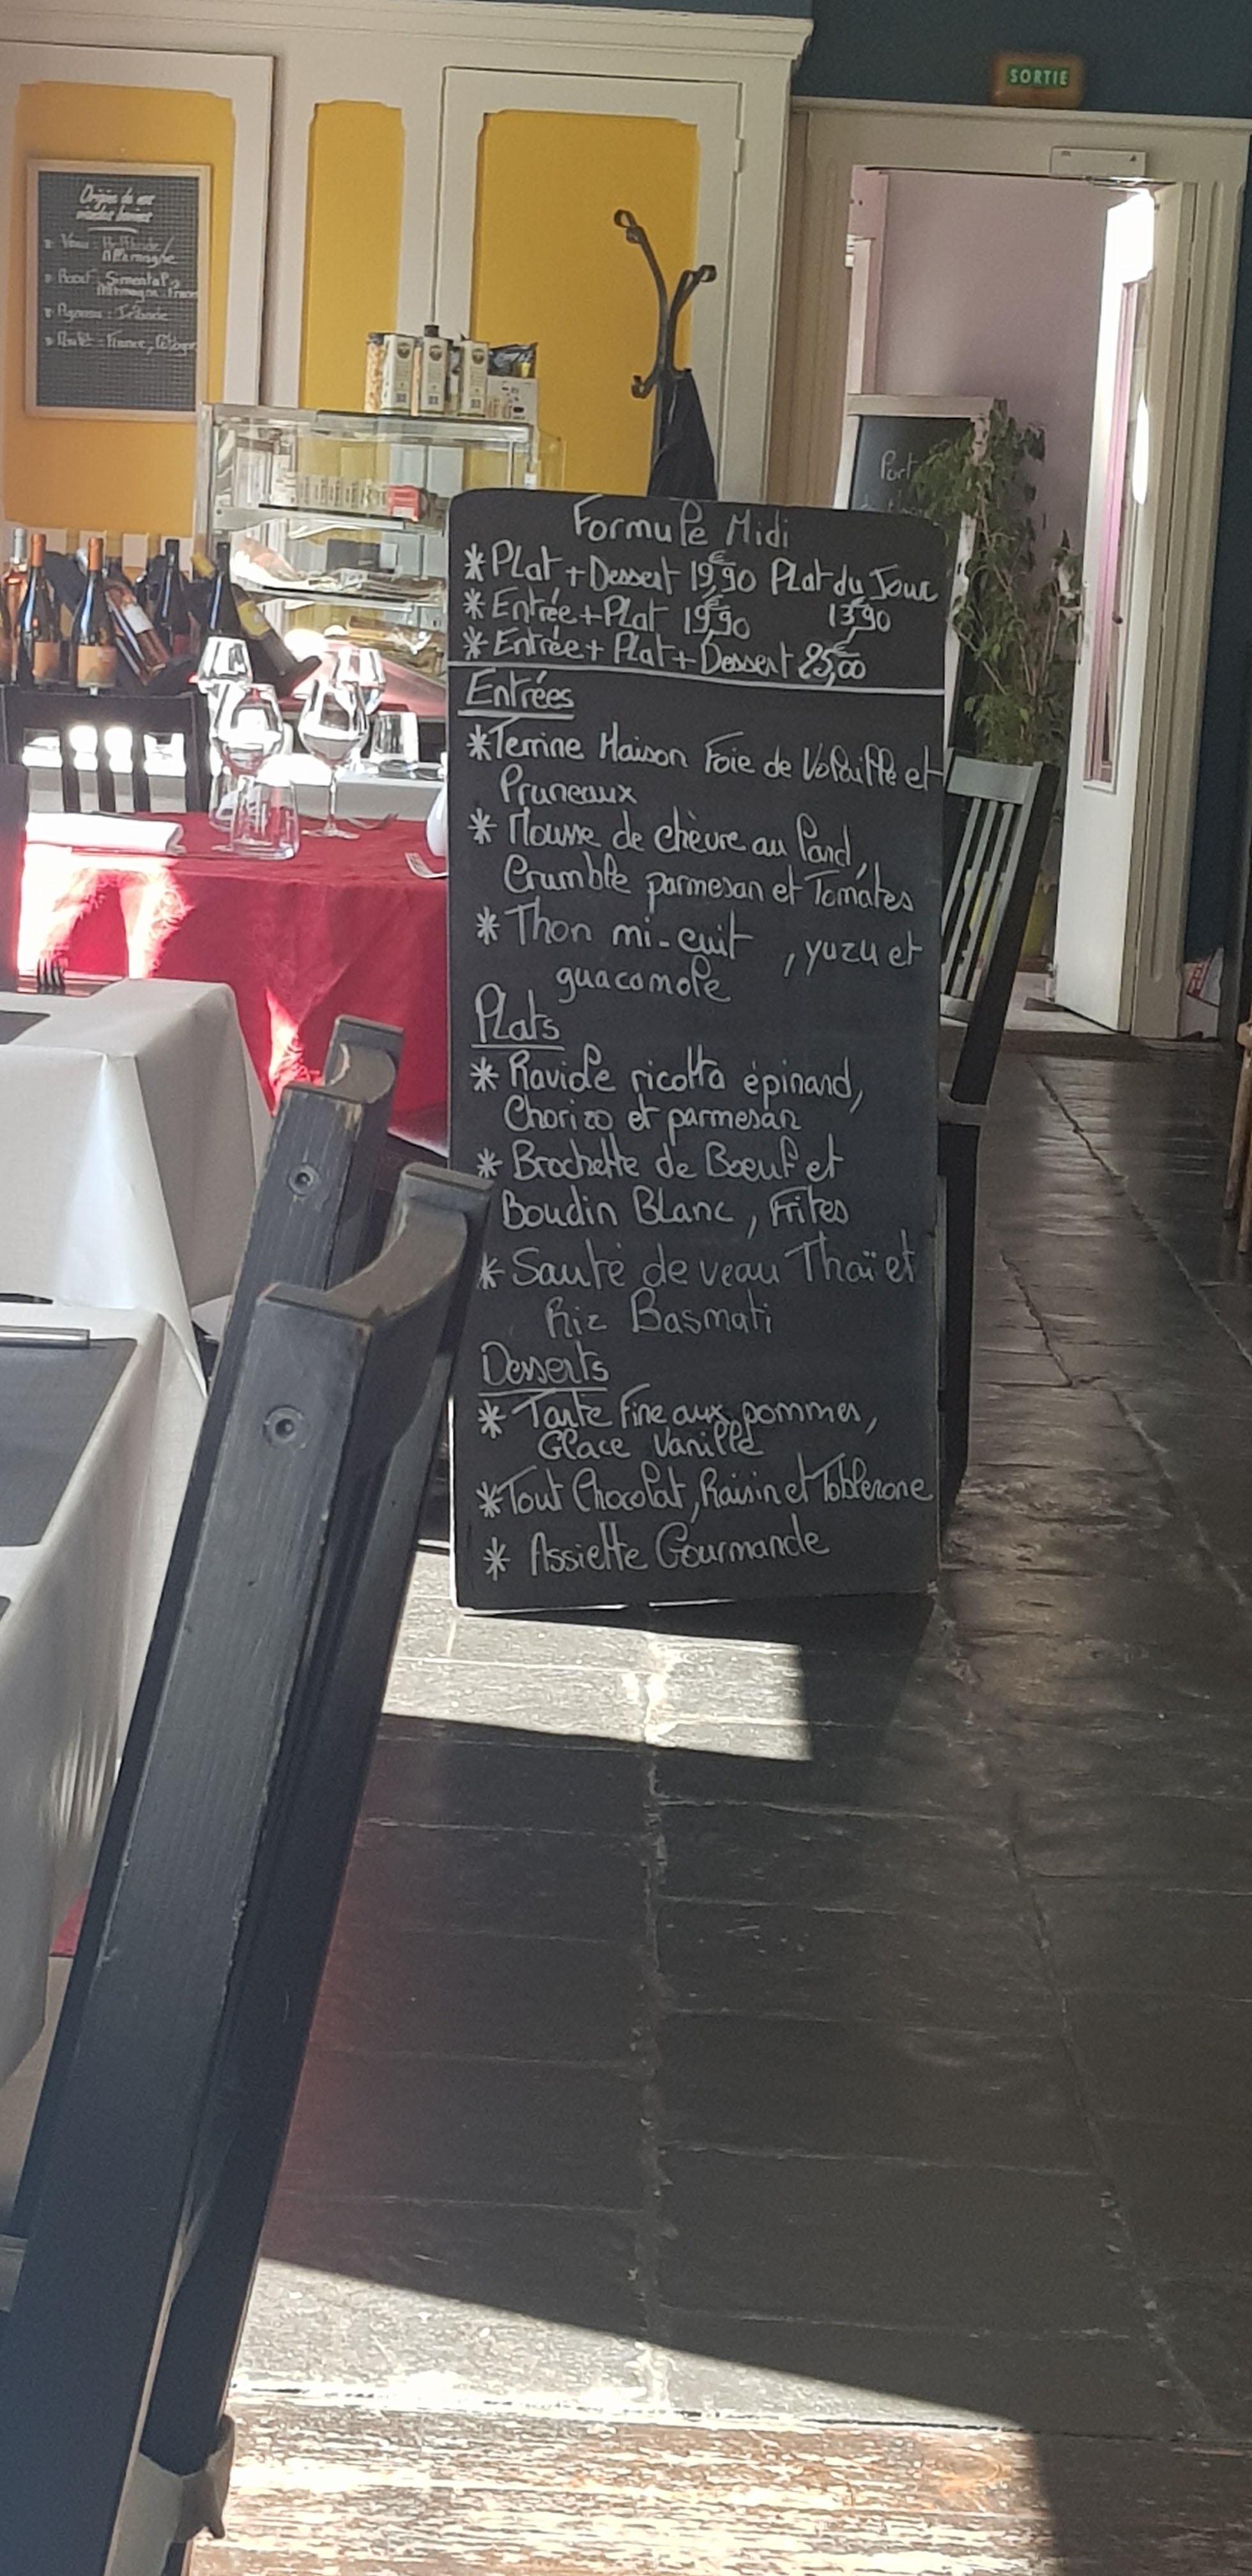 SORTIE
Origine de nos
viandes bovines
Veau : Hollande/
Allemagne
Boeuf : Simental,
Allemagne, France
Agneau : Irlande
France,
Port
Formule Midi
*Plat + Dessert 19,90€ Plat du Jour
*Entrée + Plat 19,90€ 13,90€
*Entrée + Plat + Dessert 25,00€
Entrées
*Terrine Maison Foie de Volaille et
Pruneaux
* Mousse de chèvre au lard,
Crumble parmesan et Tomates
* Thon mi-cuit , yuzu et
guacamole
Plats
* Raviole ricotta épinard,
Chorizo et parmesan
* Brochette de Boeuf et
Boudin Blanc, Frites
* Sauté de veau Thaï et
Riz Basmati
Desserts
* Tarte Fine aux pommes,
Glace Vanille
*Tout Chocolat, Raisin et Toblerone
* Assiette Gourmande